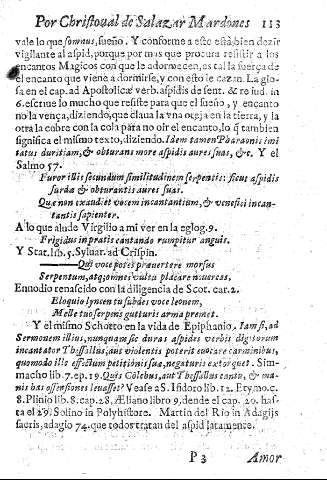 Por Christoual de Salazar Mardones 113
vale lo que somnus, sueño. Y conforme a esto està bien dezir
vigilante al aspid, porque por mas que procura resistir a los
encantos Magicos con que le adormecen, es tal la fuerça de
el encanto que viene a dormirse, y con esto le cazan. La glo-
sa en el cap. ad Apostolicæ verb. aspidis de sent. & re iud. in
6. escriue lo mucho que resiste para que el sueño, y encanto
no la vença, diziendo, que claua la vna oreja en la tierra, y la
otra la cobre con la cola para no oir el encanto, lo q̃ tambien
significa el mismo texto, diziendo. Idem tamen Pharaonis imi
tatus duritiam, & obturans more aspidis aures suas, &c. Y el
Salmo 57.
Furor illis secundum similitudinem serpentis: sicut aspidis
surda & obturantis aures suas.
Quæ non exaudiet vocem incantantium, & venefici incan-
tantis sapienter.
A lo que alude Virgilio a mi ver en la eglog. 9.
Frigidus in pratis cantando rumpitur anguis.
Y Stat. lib. 5. Syluar. ad Crispin.
Qui voce potes præuertere morsus
Serpentum, atq; omnes vultu placare nouercas.
Ennodio renascido con la diligencia de Scot. car. 2.
Eloquio lyncem tu subdes voce leonem,
Melle tuo serpens gutturis arma premet.
Y el mismo Schotto en la vida de Epiphanio. Iam si, ad
Sermonem illius, nunquam sic duras aspides verbis digitorum
incantator Thessallus, aut violentis poterit euocare carminibus,
quomodo ille effectum petitioni suæ, negaturis extorquet. Sim-
macho lib. 7. ep. 19. Quis Colchus, aut Thessallus cantu, & ma-
nis has offensiones leuasset? Vease a S. Isidoro lib. 12. Etymo. c.
8. Plinio lib. 8. cap. 28. Æliano libro 9, dende el cap. 20. has-
ta el 29. Solino in Polyhistore. Martin del Rio in Adagijs
sacris, adagio 74. que todos tratan del aspid latamente.
P 3 Amor